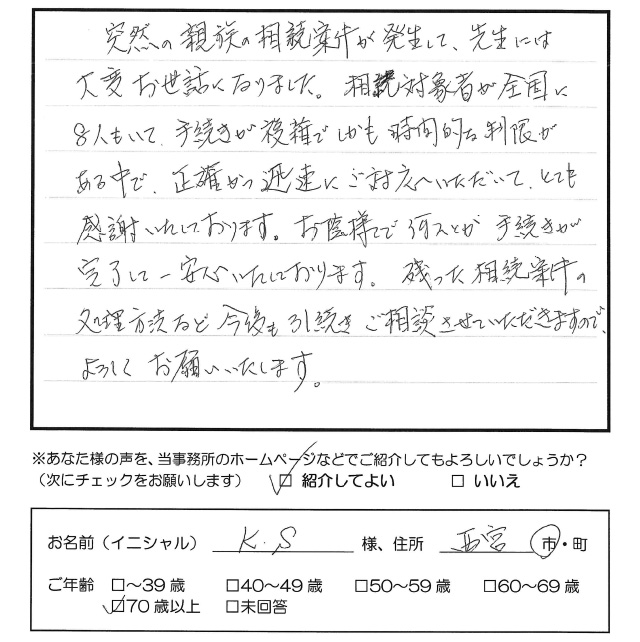 突然の親族の相続案件が発生して、先生には
大変お世話になりました。相続対象者が全国に
8人もいて、手続きが複雑でしかも時間的な制限が
ある中で、正確かつ迅速にご対応いただいて、とても
感謝いたしております。お陰様で何とか手続きが
完了して一安心いたしております。残った相続案件の
処理方法など今後も引続きご相談させていただきますので、
よろしくお願いいたします。
※あなた様の声を、当事務所のホームページなどでご紹介してもよろしいでしょうか？
（次にチェックをお願いします） ☑ 紹介してよい □ いいえ
お名前（イニシャル） K.S 様、住所 西宮 市・町
ご年齢 □～39歳 □40～49歳 □50～59歳 □60～69歳
☑70歳以上 □未回答